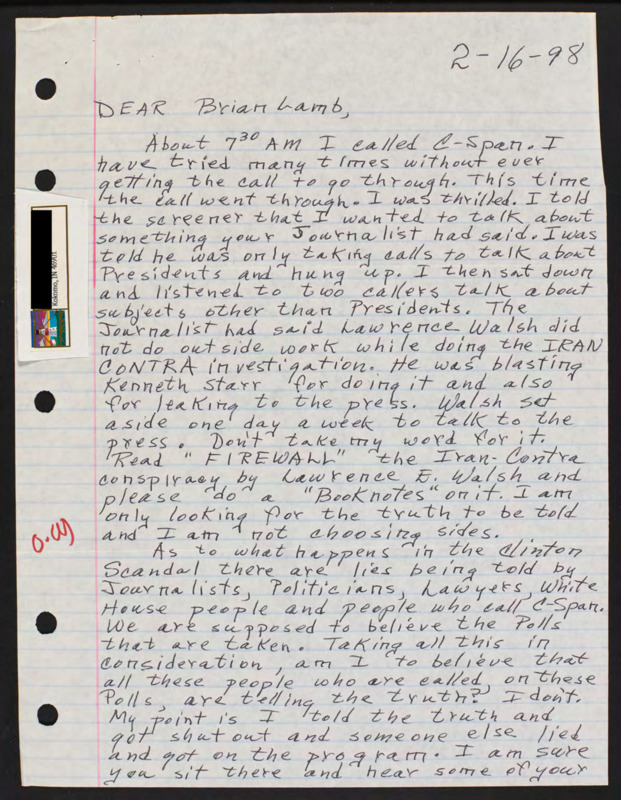 2-16-98
DEAR Brian Lamb,
About 7³⁰ AM I called C-Span. I
have tried many times without ever
getting the call to go through. This time
the call went through. I was thrilled. I told
the screener that I wanted to talk about
something your Journalist had said. I was
told he was only taking calls to talk about
Presidents and hung up. I then sat down
and listened to two callers talk about
subjects other than Presidents. The
Journalist had said Lawrence Walsh did
not do outside work while doing the IRAN
CONTRA investigation. He was blasting
Kenneth Starr for doing it and also
for leaking to the press. Walsh set
aside one day a week to talk to the
press. Don't take my word for it.
Read "FIREWALL" the Iran-Contra
conspiracy by Lawrence E. Walsh and
please do a "Booknotes" on it. I am
only looking for the truth to be told
and I am not choosing sides.
As to what happens in the Clinton
Scandal there are lies being told by
Journalists, Politicians, Lawyers, White
House people and people who call C-Span.
We are supposed to believe the Polls
that are taken. Taking all this in
consideration, am I to believe that
all these people who are called on these
Polls, are telling the truth? I don't.
My point is I told the truth and
got shut out and someone else lied
and got on the program. I am sure
you sit there and hear some of your
Kokomo, IN 46901